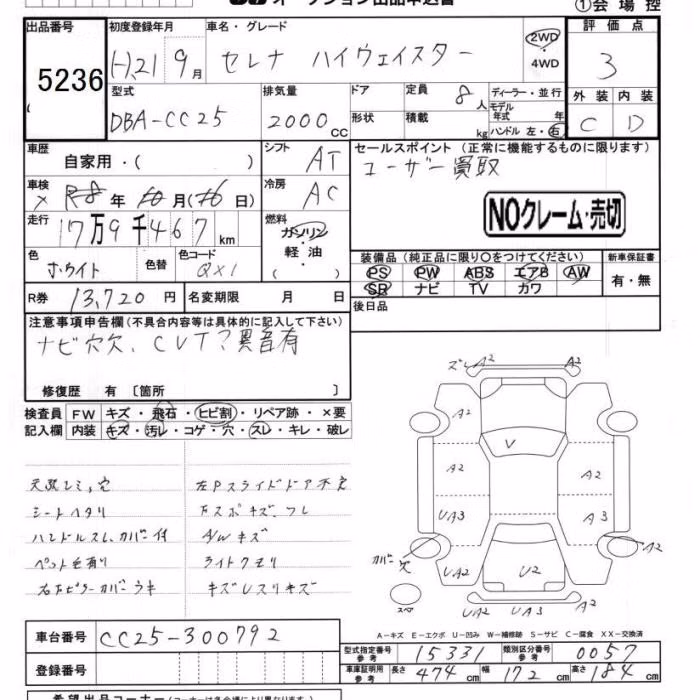 オークション出品申込書
①会場控
出品番号
5236
初度登録年月
H.21 9月
車名・グレード
セレナ ハイウェイスター
2WD
4WD
評価点
3
型式
DBA-CC25
排気量
2000cc
ドア
形状
定員 8人
積載 kg
ディーラー・並行
モデル年式 年
ハンドル 左・右
外装 内装
C D
車歴
自家用・( )
シフト
AT
セールスポイント (正常に機能するものに限ります)
ユーザー買取
車検
× R8年 10月(16日)
冷房
AC
NOクレーム・売切
走行
17万9千467km
燃料
ガソリン
軽油
( )
色
ホワイト
色替
色コード
QX1
装備品 (純正品に限り○をつけてください)
PS PW ABS エアB AW
SR ナビ TV カワ
新車保証書
有・無
R券 13,720円
名変期限 月 日
後日品
注意事項申告欄 (不具合内容等は具体的に記入して下さい)
ナビ穴欠、CVT?異音有
修復歴 有 〔箇所 〕
検査員記入欄
FW キズ・飛石・ヒビ割・リペア跡・×要
内装 キズ・汚レ・コゲ・穴・スレ・キレ・破レ
シートヘタリ
ハンドルスレ、カバー付
左Pスライドドア不良
A/Wキズ
ライトクモリ
ズレ A2 A2
A2
V
A2 A2
UA3 A3
カバー欠
A2
UA2 U2 UA2
スペア
UA2 UA3 A2
A-キズ E-エクボ U-凹み W-補修跡 S-サビ C-腐食 XX-交換済
車台番号
CC25-300792
型式指定番号 参考 15331
類別区分番号 参考 0057
登録番号
車庫証明用 参考 長さ 474cm 幅 172cm 高さ 184cm
希望出品コーナー